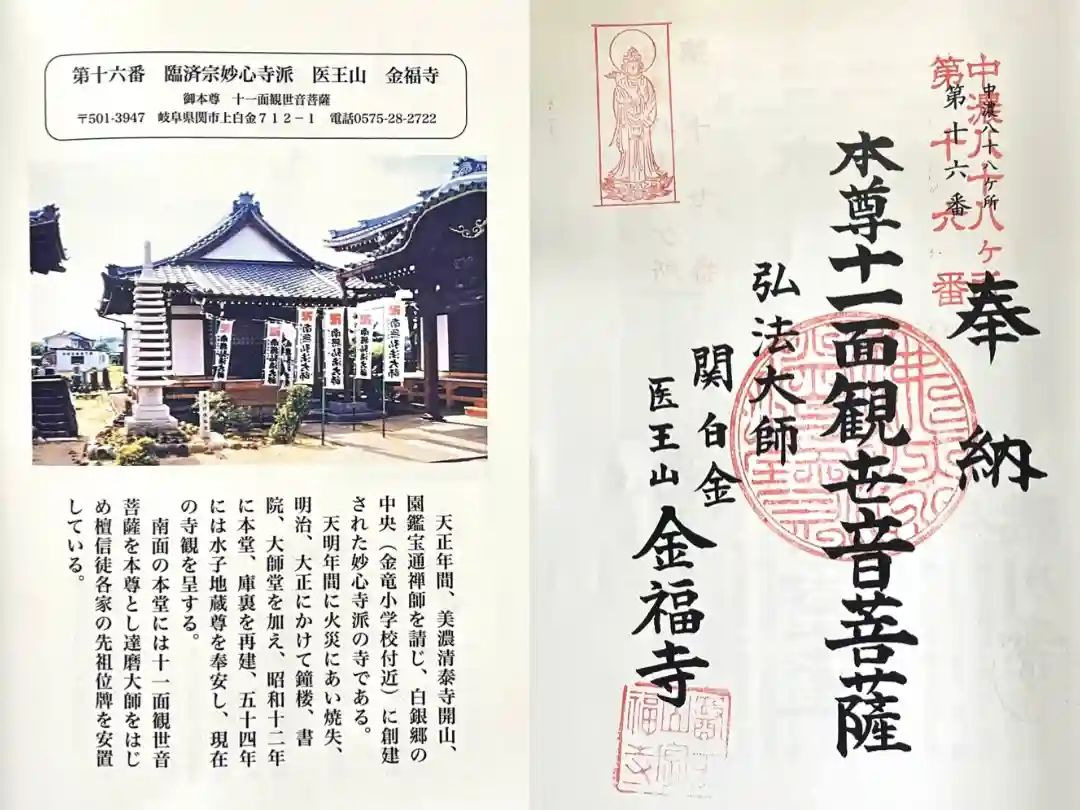 第十六番　臨済宗妙心寺派　医王山　金福寺
御本尊　十一面観世音菩薩
〒501-3947　岐阜県関市上白金７１２－１　電話0575-28-2722
南無弘法大師
南無弘法大師
南無弘法大師
南無弘法大師
天正年間、美濃清泰寺開山、
園鑑宝通禅師を請じ、白銀郷の
中央（金竜小学校付近）に創建
された妙心寺派の寺である。
天明年間に火災にあい焼失、
明治、大正にかけて鐘楼、書
院、大師堂を加え、昭和十二年
に本堂、庫裏を再建、五十四年
には水子地蔵尊を奉安し、現在
の寺観を呈する。
南面の本堂には十一面観世音
菩薩を本尊とし達磨大師をはじ
め檀信徒各家の先祖位牌を安置
している。
中濃八十八ヶ所
第十六番
中濃八十八ヶ所
第十六番
奉納
本尊十一面観世音菩薩
弘法大師
関白金
医王山
金福寺